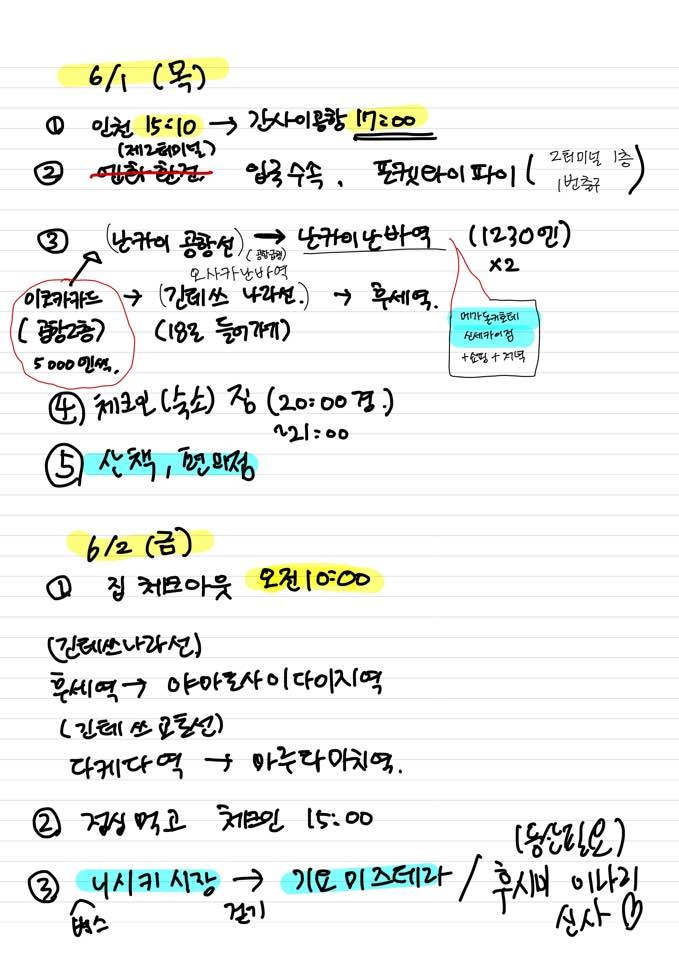 6/1 (목)
① 인천 15:10 → 간사이공항 17:00
(제2터미널)
② 입국수속, 포켓와이파이 (2터미널 1층
1번출구)
③ (난카이 공항선) → 난카이난바역 (1230엔)
(공항급행) ×2
오사카난바역
이코카카드 → (긴테쓰 나라선) → 후세역.
(공항2층) (18로 들어가기)
5000엔씩.
메가돈키호테
신세카이점
+쇼핑+저녁
④ 체크인 (숙소) 짐 (20:00경.)
~21:00
⑤ 산책, 편의점
6/2 (금)
① 집 체크아웃 오전10:00
(긴테쓰나라선)
후세역 → 야마토사이다이지역
(긴테쓰교토선)
다케다역 → 마루타마치역.
② 점심 먹고 체크인 15:00
③ 니시키 시장 → 기요미즈테라 / (동산필요)
후시미 이나리
신사 ♡
버스 걷기